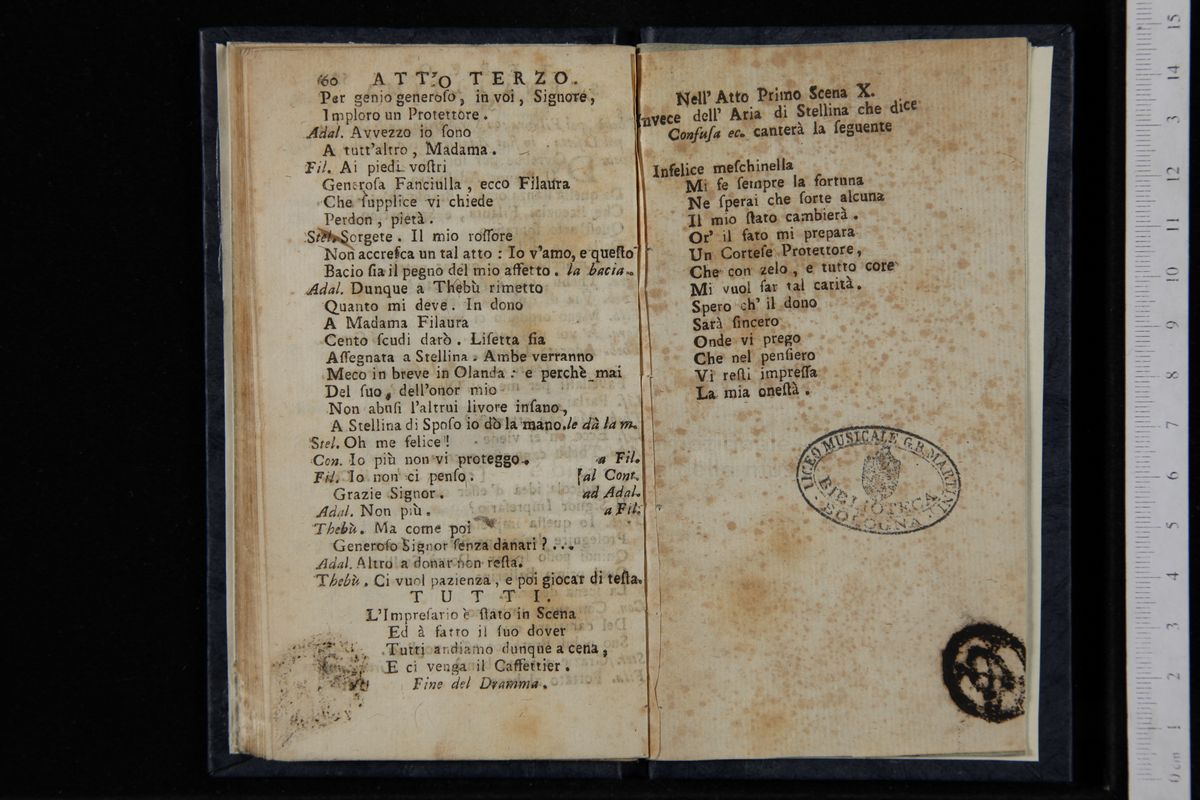 60 ATTO TERZO.
Per genio generoſo, in voi, Signore,
Imploro un Protettore.
Adal. Avvezzo io ſono
A tutt'altro, Madama.
Fil. Ai piedi voſtri
Generoſa Fanciulla, ecco Filaura
Che ſupplice vi chiede
Perdon, pietà.
Stel. Sorgete. Il mio roſſore
Non accreſca un tal atto: Io v'amo, e queſto
Bacio ſia il pegno del mio affetto. la bacia.
Adal. Dunque a Thebù rimetto
Quanto mi deve. In dono
A Madama Filaura
Cento ſcudi darò. Liſetta ſia
Aſſegnata a Stellina. Ambe verranno
Meco in breve in Olanda: e perchè mai
Del ſuo, dell'onor mio
Non abuſi l'altrui livore inſano,
A Stellina di Spoſo io dò la mano. le dà la m.
Stel. Oh me felice!
Con. Io più non vi proteggo. a Fil.
Fil. Io non ci penſo. [al Cont.
Grazie Signor. ad Adal.
Adal. Non più. a Fil.
Thebù. Ma come poi
Generoſo Signor ſenza danari? ...
Adal. Altro a donar non reſta.
Thebù. Ci vuol pazienza, e poi giocar di teſta.
TUTTI.
L'Impreſario è ſtato in Scena
Ed à fatto il ſuo dover
Tutti andiamo dunque a cena,
E ci venga il Caffettier.
Fine del Dramma.
Nell' Atto Primo Scena X.
Invece dell' Aria di Stellina che dice
Confuſa ec. canterà la ſeguente
Infelice meſchinella
Mi fe ſempre la fortuna
Ne ſperai che ſorte alcuna
Il mio ſtato cambierà.
Or' il fato mi prepara
Un Corteſe Protettore,
Che con zelo, e tutto core
Mi vuol far tal carità.
Spero ch' il dono
Sarà ſincero
Onde vi prego
Che nel penſiero
Vi reſti impreſſa
La mia oneſtà.
LICEO MUSICALE G.B. MARTINI
BIBLIOTECA
BOLOGNA
0 cm 1 2 3 4 5 6 7 8 9 10 11 12 13 14 15